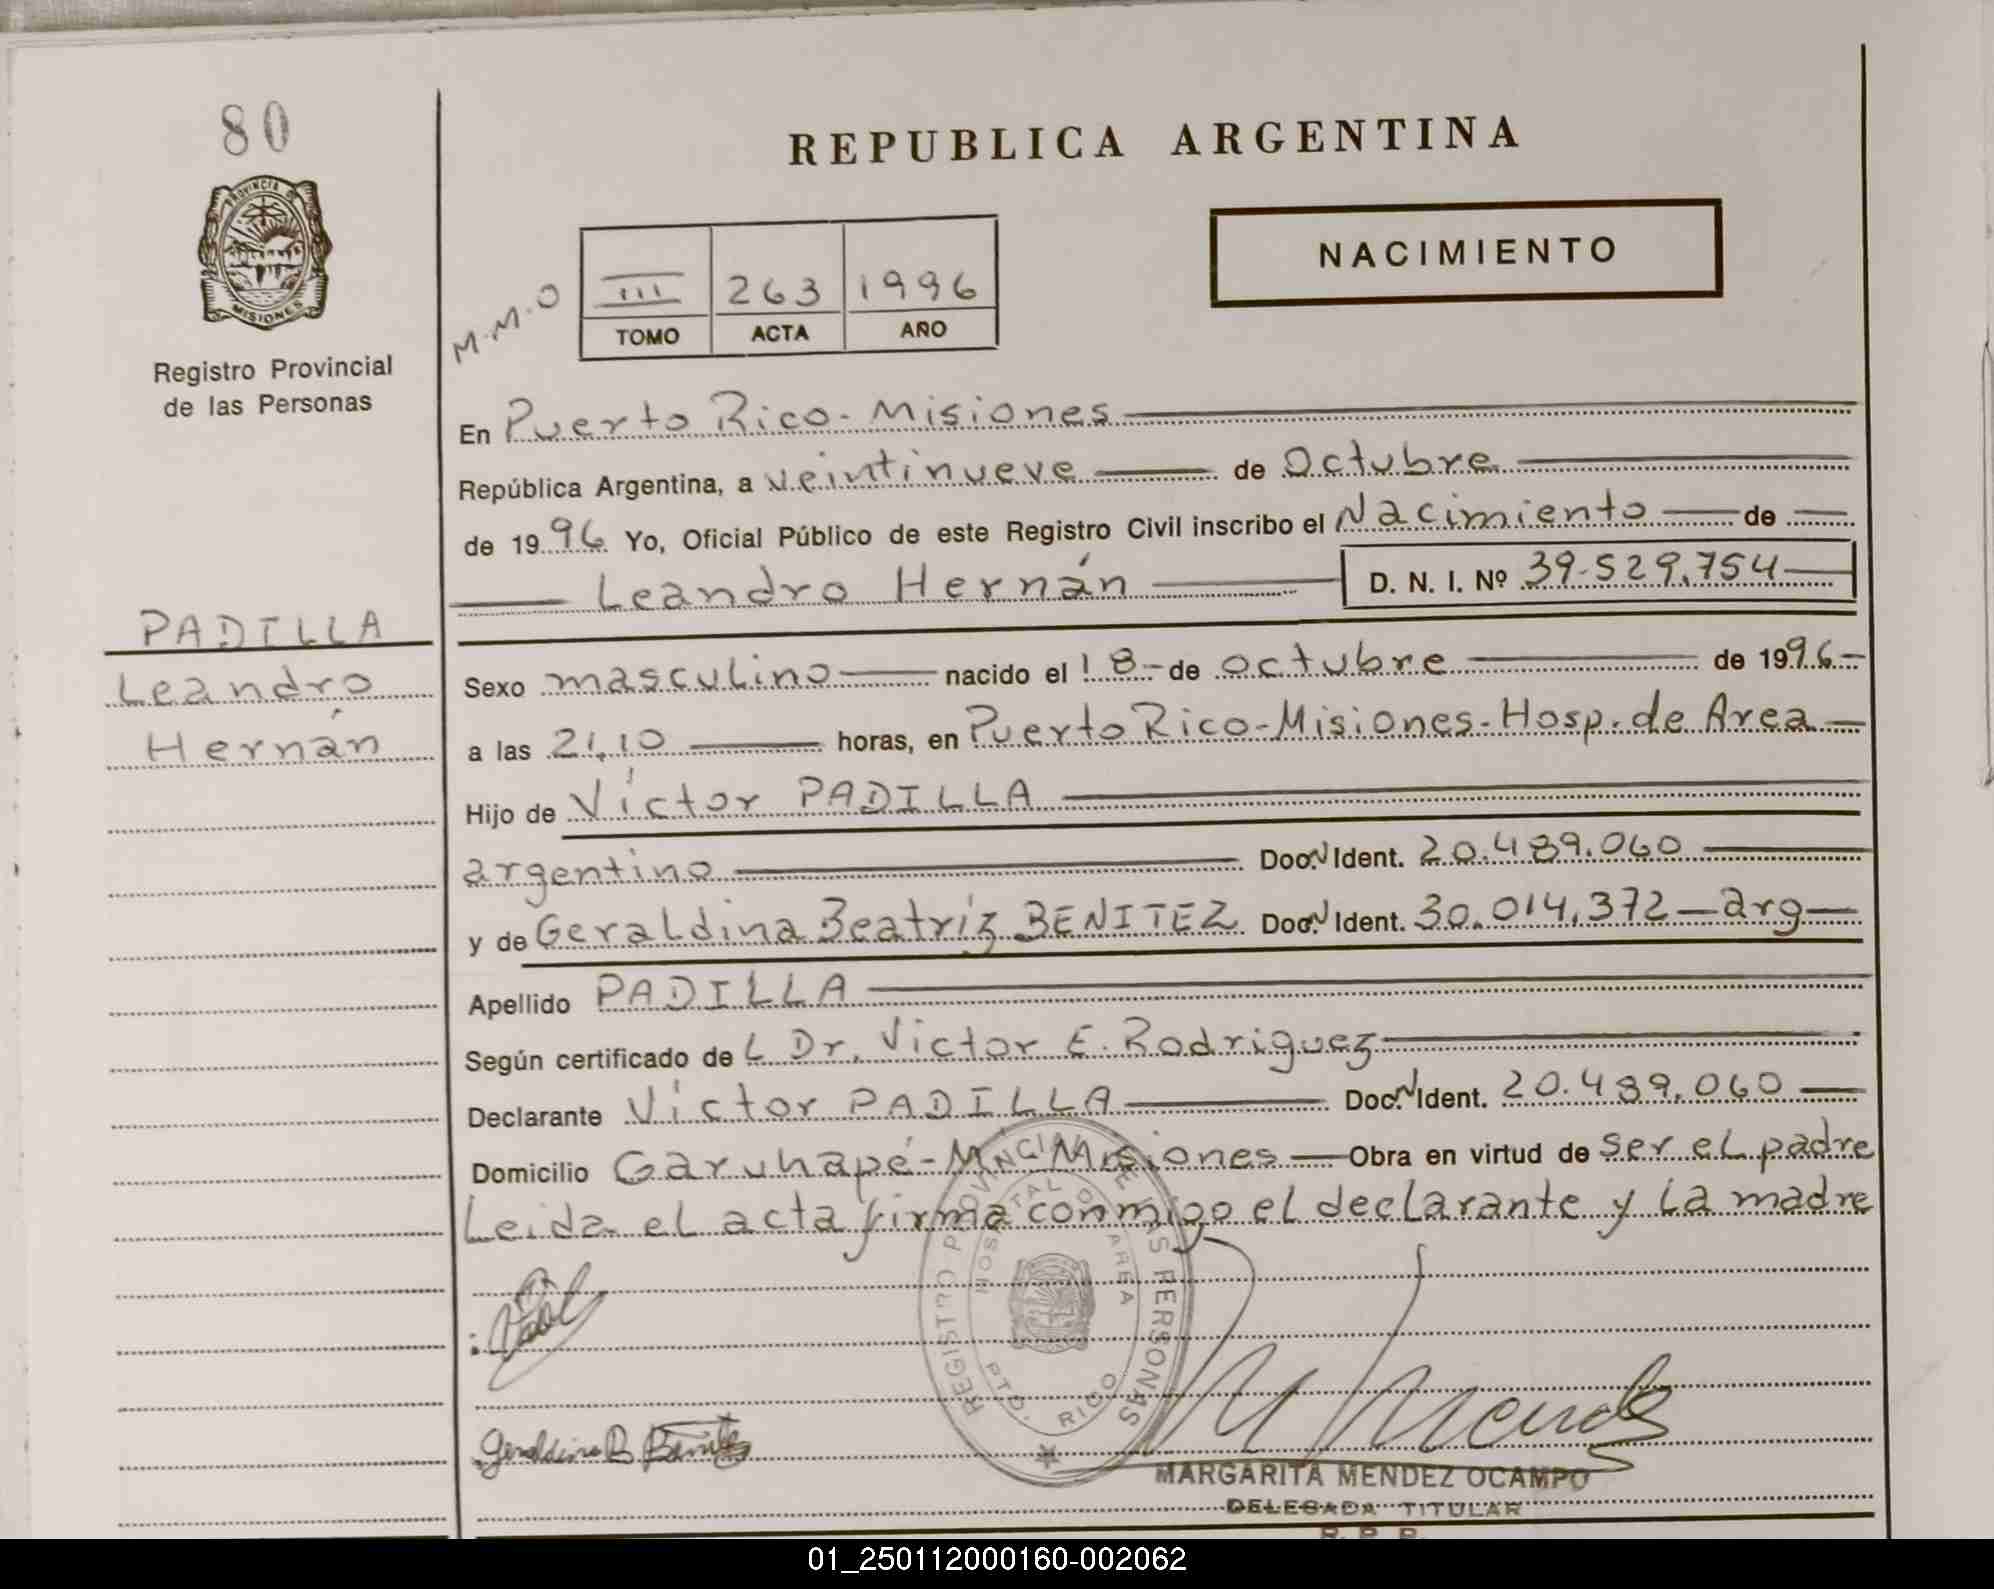 80
REPUBLICA ARGENTINA
PROVINCIA DE
MISIONES
NACIMIENTO
M.M.O
III 263 1996
TOMO ACTA AÑO
Registro Provincial
de las Personas
En Puerto Rico - Misiones
República Argentina, a veintinueve de Octubre
de 1996 Yo, Oficial Público de este Registro Civil inscribo el Nacimiento de
Leandro Hernán D. N. I. Nº 39.529.754
PADILLA
Leandro
Hernán
Sexo masculino nacido el 18 - de octubre de 1996-
a las 21,10 horas, en Puerto Rico - Misiones - Hosp. de Area
Hijo de Víctor PADILLA
argentino Doc. N Ident. 20.489.060
y de Geraldina Beatríz BENITEZ Doc. N Ident. 30.014.372 - arg
Apellido PADILLA
Según certificado de L Dr. Victor E. Rodriguez
Declarante Víctor PADILLA Doc. N Ident. 20.489.060
Domicilio Garuhapé - Misiones Obra en virtud de ser el padre
Leida el acta firma conmigo el declarante y la madre
REGISTRO PROVINCIAL DE LAS PERSONAS
HOSPITAL DE AREA
PTO. RICO
Geraldina B Benitez
M Mendez
MARGARITA MENDEZ OCAMPO
DELEGADA TITULAR
R. P. P.
01_250112000160-002062